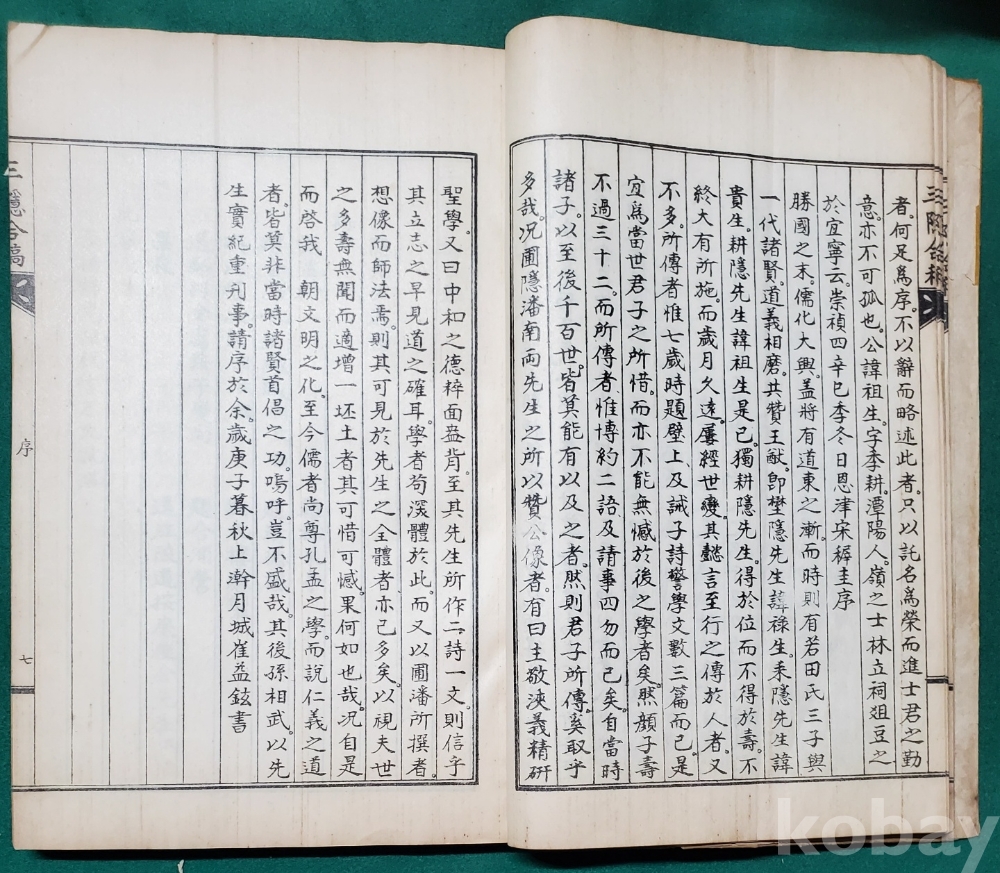 者。何足爲序。不以辭而略述此者。只以託名爲榮而進士君之勤
意。亦不可孤也。公諱祖生。字季耕。潭陽人。嶺之士林立祠俎豆之
於宜寧云。崇禎四辛巳季冬日恩津宋穉圭序
勝國之末。儒化大興。盖將有道東之漸。而時則有若田氏三子與
一代諸賢。道義相磨。共贊王猷。卽壄隱先生諱祿生。耒隱先生諱
貴生。耕隱先生諱祖生是已。獨耕隱先生。得於位而不得於壽。不
終大有所施。而歲月久遠。屢經世變。其懿言至行之傳於人者。又
不多。所傳者惟七歲時題壁上及誡子詩警學文數三篇而已。是
宜爲當世君子之所惜。而亦不能無憾於後之學者矣。然顔子壽
不過三十二。而所傳者。惟博約二語及請事四勿而已矣。自當時
諸子。以至後千百世。皆莫能有以及之者。然則君子所傳。奚取乎
多哉。况圃隱潘南両先生之所以贊公像者。有曰主敬浹義精研
聖學。又曰中和之德粹面盎背。至其先生所作二詩一文。則信乎
其立志之早見道之確耳。學者苟深體於此。而又以圃潘所撰者。
想像而師法焉。則其可見於先生之全體者。亦已多矣。以視夫世
之多壽無聞而適增一坯土者其可惜可憾。果何如也哉。况自是
而啓我 朝文明之化。至今儒者尚尊孔孟之學。而說仁義之道
者。皆莫非當時諸賢首倡之功。嗚呼。豈不盛哉。其後孫相武。以先
生實紀重刋事。請序於余。歲庚子暮秋上澣月城崔益鉉書
三隱合稿
序
七
三隱合稿
kobay